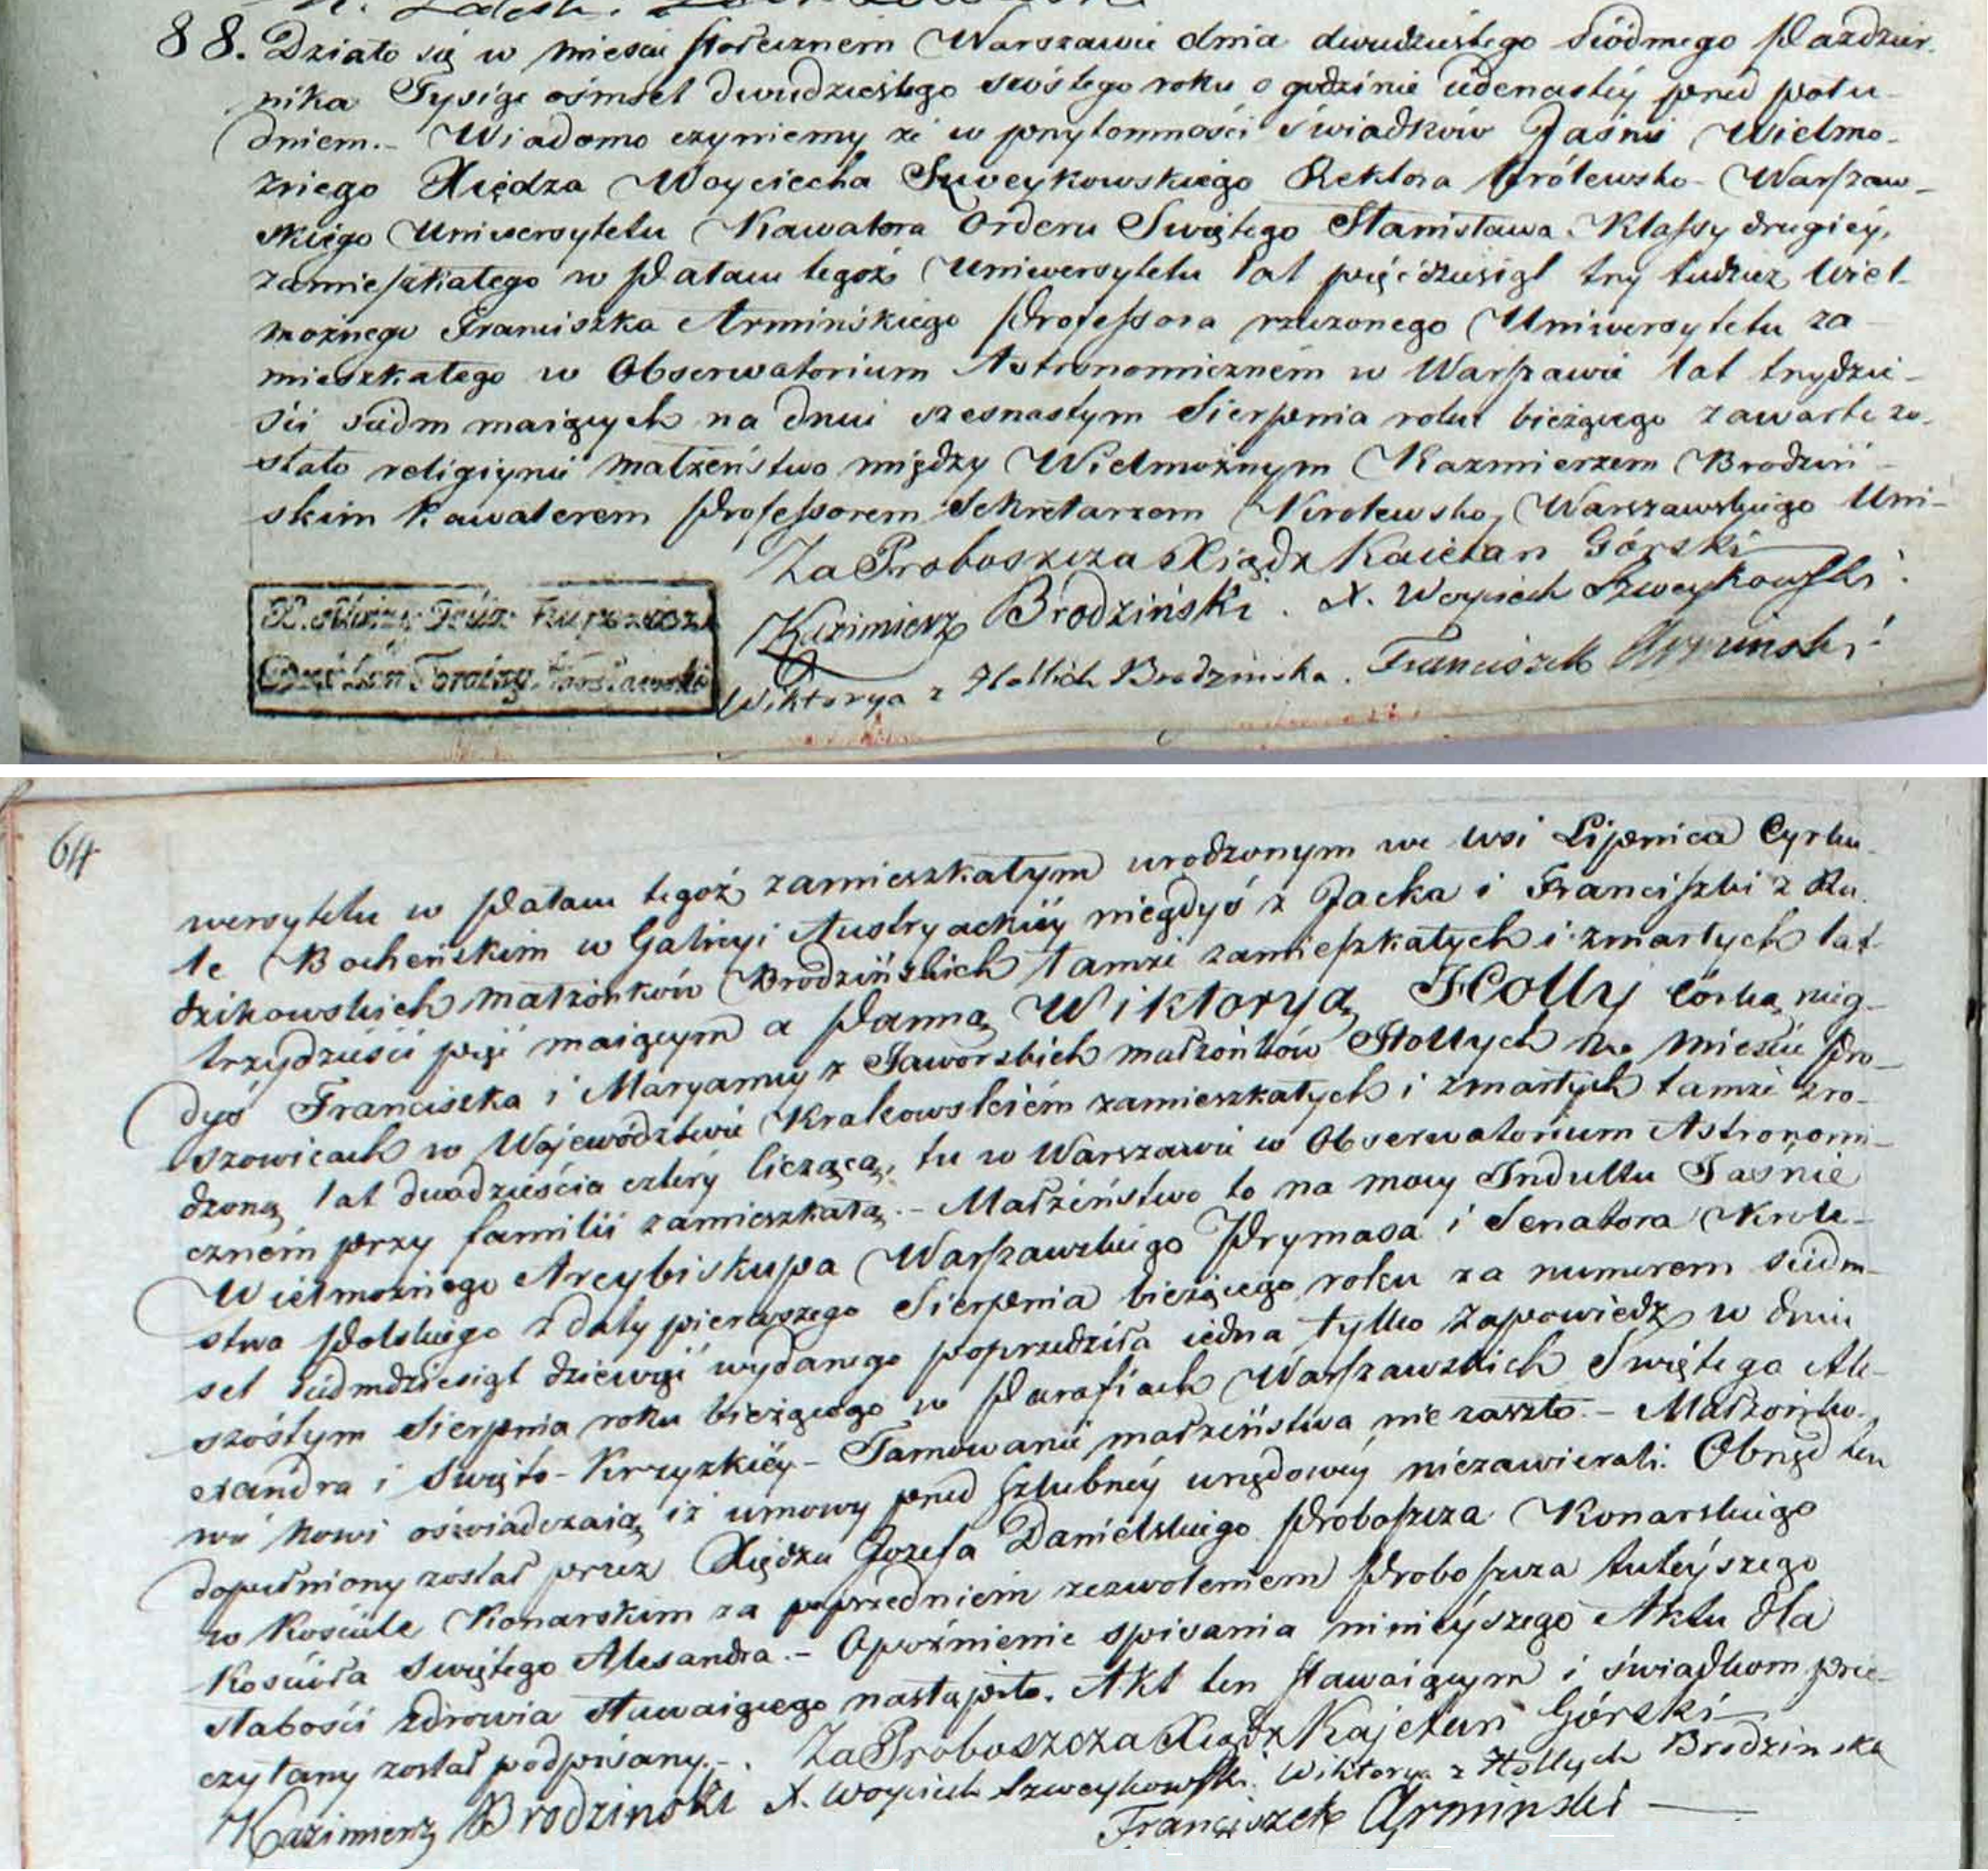 88. Działo się w mieście stołecznem Warszawie dnia dwudziestego siódmego Paździer-
nika Tysiąc ośmset dwudziestego szóstego roku o godzinie iedenastéy przed połu-
dniem.- Wiadomo czyniemy że w przytomności świadków Jaśnie Wielmo-
żnego Xiędza Woyciecha Szweykowskiego Rektora Królewsko-Warszaw-
skiego Uniwersytetu Kawalera Orderu Swiętego Stanisława Klassy drugiéy,
zamieszkałego w Pałacu tegoż Uniwersytetu lat pięćdziesiąt trzy tudzież Wiel-
możnego Franciszka Armińskiego Professora rzeczonego Uniwersytetu za-
mieszkałego w Obserwatorium Astronomiczném w Warszawie lat trzydzie-
ści siedm maiących na dniu szesnastym Sierpnia roku bieżącego zawarte zo-
stało religiyne małżeństwo między Wielmożnym Kazmierzem Brodziń-
skim Kawalerem Professorem Sekretarzem Krolewsko, Warszawskiego Uni-
Za Proboszcza Xiądz Kaietan Górski
Kazimierz Brodziński. X. Woyciech Szweykowski.
Wiktorya z Hollich Brodzińska. Franciszek Armiński
64
wersytetu w Pałacu tegoż zamieszkałym urodzonym we wsi Lipnica Cyrku-
le Bocheńskim w Galicyi Austryackiéy niegdyś z Jacka i Franciszki z Ra-
dzikowskich małżonków Brodzińskich tamże zamieszkałych i zmarłych lat
trzydzieści pięć maiącym a Panną Wiktoryą Holly córką nieg-
dyś Franciszka i Maryanny z Jaworskich małżonków Hollych w mieście Pro-
szowicach w Wojewódzwie Krakowskiém zamieszkałych i zmarłych tamże zro-
dzoną lat dwadzieścia cztéry liczącą, tu w Warszawie w Obserwatorium Astronomi-
czném przy familii zamieszkałą.- Małżeństwo to na mocy Indultu Jaśnie
Wielmożniego Arcybiskupa Warszawskiego Prymasa i Senatora Krole-
stwa Polskiego z daty pierwszego Sierpnia bieżącego roku za numerem siedm-
set siedmdziesiąt dziewięć wydanego poprzedziła iedna tylko zapowiedz w dniu
szóstym Sierpnia roku bieżącego w Parafiach Warszawskich Swiętego Ale-
xandra i Swięto-Krzyzkiéy- Tamowanie małżeństwa nie zaszło.- Małżonko-
wie nowi oświadczaią iż umowy przed szlubnéy urzędowéy niezawierali. Obrzęd ten
dopełniony został przez Xiędza Jozefa Danielskiego Proboszcza Konarskiego
w Kosciele Konarskim za poprzedniém zezwoleniem Proboszcza tuteyszego
Kościoła Swiętego Alexandra.- Opoźnienie spisania niniéyszego Aktu dla
słabości zdrowia Stawaiącego nastąpiło. Akt ten stawaiącym i świadkom prze-
czytany został podpisany.-. Za Proboszcza Xiądz Kajetan Górski
Kazimierz Brodziński X. Woyciech Szweykowski. Wiktorya z Hollych Brodzińska
Franciszek Armiński